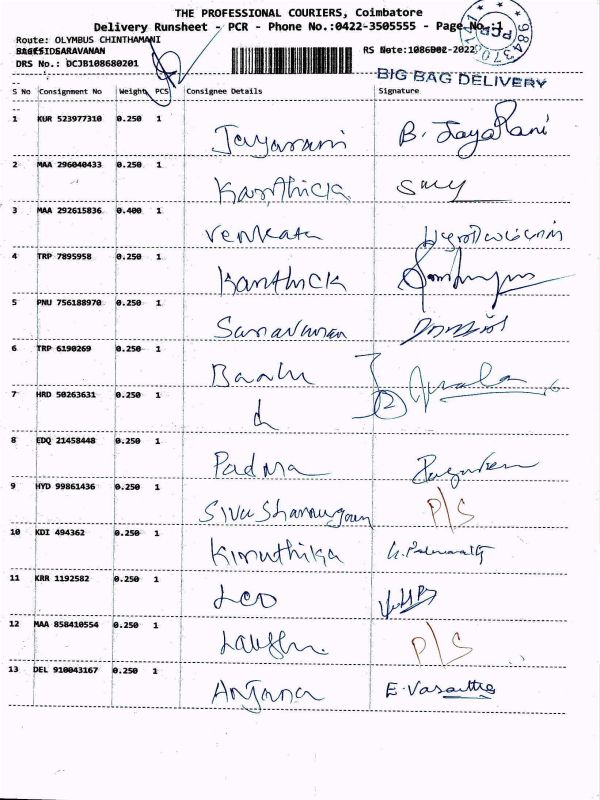 THE PROFESSIONAL COURIERS, Coimbatore
Delivery Runsheet - PCR - Phone No.:0422-3505555 - Page No.:1
Route: OLYMBUS CHINTHAMANI
SARAVANAN
RS Date: 1086002-2022
DRS No.: DCJB108680201
PCR
BIG BAG DELIVERY
S No Consignment No Weight PCS Consignee Details Signature
1 KUR 523977310 0.250 1 Jayarani B. JayaRani
2 MAA 296040433 0.250 1 Karthick
3 MAA 292615836 0.400 1 Venkata
4 TRP 7895958 0.250 1 Karthick
5 PNU 756188970 0.250 1 Saravanan
6 TRP 6190269 0.250 1 Baalu
7 HRD 50263631 0.250 1 d 2
8 EDQ 21458448 0.250 1 Padma
9 HYD 99861436 0.250 1 Siva Shanmugam P/S
10 KDI 494362 0.250 1 Kiruthika
11 KRR 1192582 0.250 1 Leo
12 MAA 858410554 0.250 1 P/S
13 DEL 910043167 0.250 1 Anjana E. Vasantha